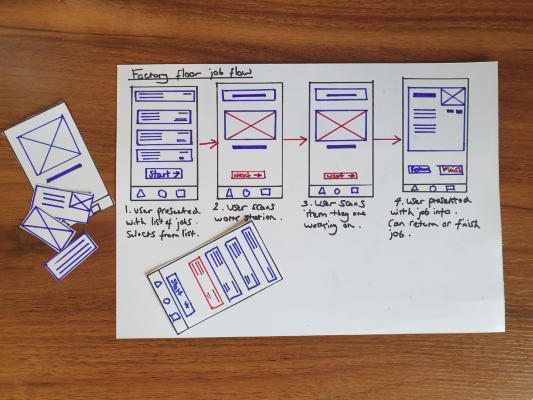 Factory floor job flow
Start →
Next →
Next →
Finish
1. User presented
with list of jobs.
Selects from list.
2. User scans
work station.
3. User scans
item they are
working on.
4. User presented
with job info.
Can return or finish
job.
Start →